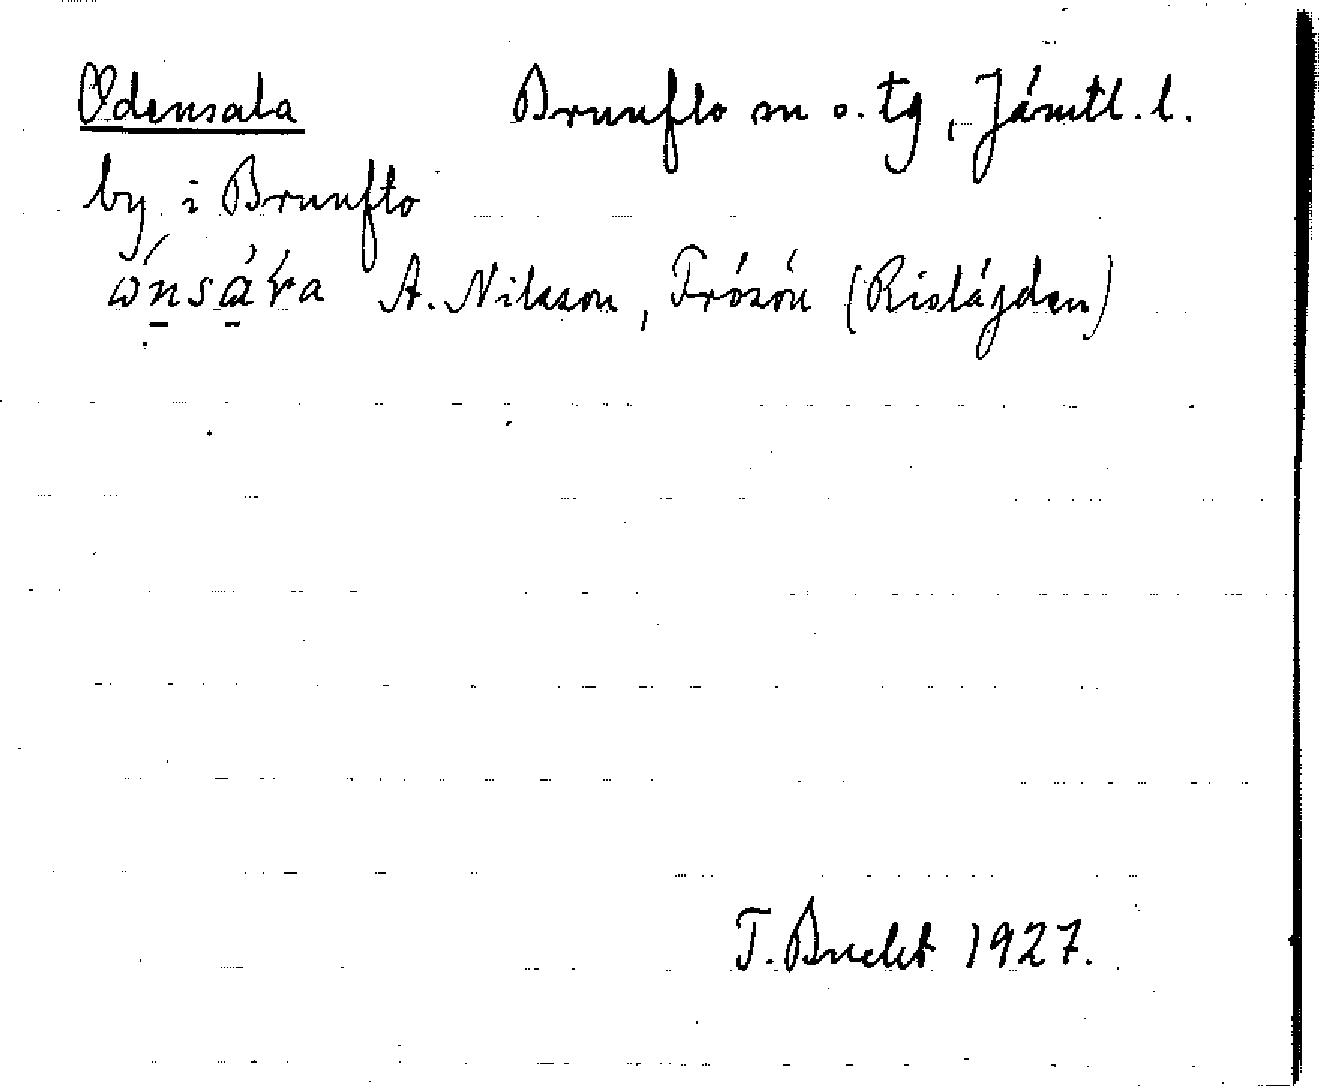 Odensala Brunflo sn o. tg, Jämtl. l.
by i Brunflo
A. Nilsson, Frösön (Rislägden)
T. Bucht 1927.